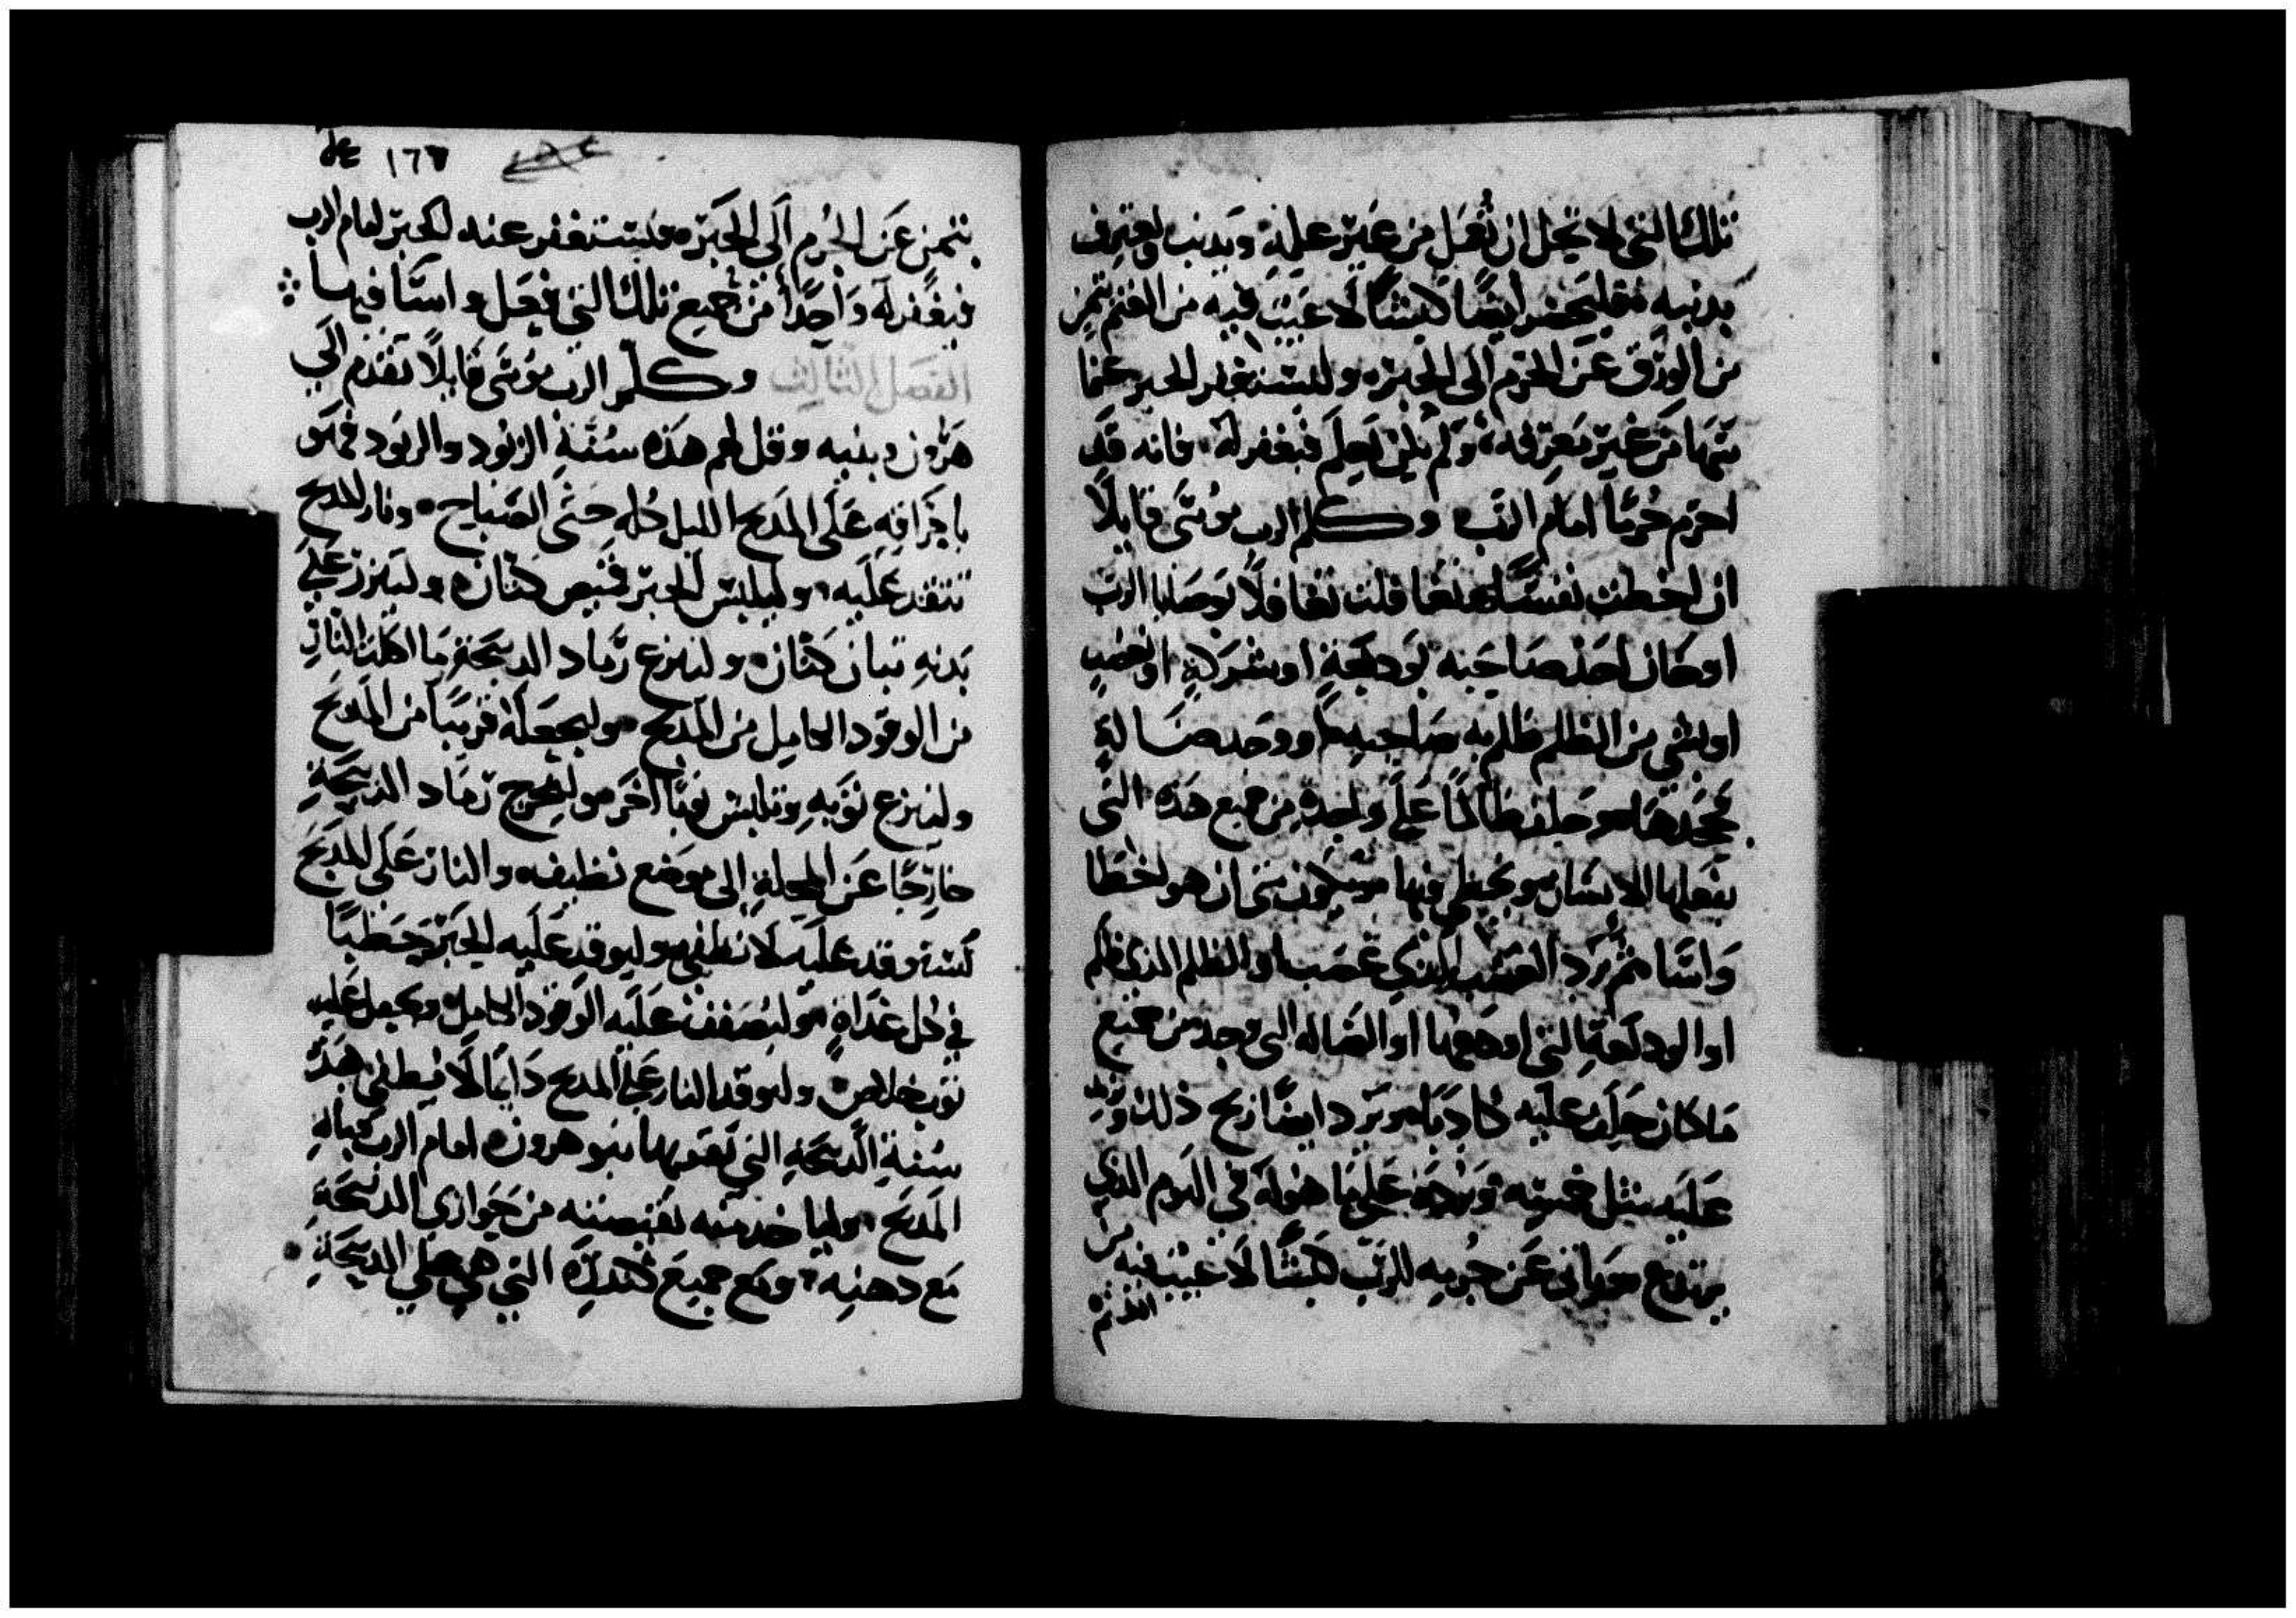 تلك التي لا تحل ان تفعل من غير علمه ويدنب ويعترف
بدنبه فليحضر ايضًا كبشًا لا عيب فيه من الغنم بثمن
من الورق عن الجرم الى الحبر وليستغفر الحبر عنما
من غير معرفه ولم يكن يعلم فيغفر له فانه قد
اجرم جُرمًا امام الرب وكلم الرب موسَى قايلًا
ان اخطت نفسًا وتغافلت تغافلًا بوصايا الرب
او كان احد صاحبه بوديعةٍ او شركةٍ او غصب
او بشي من الظلم ظلم به صاحبه او وجد ضاله
فجحدها وحلف ظالمًا على واحدةٍ من جميع هذه التى
يفعلها الانسان ويخطي فيها ويكون متى ان هو اخطا
وَاسَا ثم يرد الغصب الذي غصب او الظلم الذي ظلم
او الوديعة التي اودعها او الضاله التى وجد من جميع
ما كان حلف عليه كادبًا ويرد ايضًا ذلك ويزيد
عليه مثل خمسه ويرده على ما هو له في اليوم الذي
يرتدع وياتى عن جُرمه للرب كبشًا لا عيب فيه من
الغنم
١٦٧
بثمن عن الجُرم الَى الحَبر فليستغفر عنه الحبر امام الرب
فيغفر له وَاحدًا من جميع تلك التي فعل واسَا فيها
الفصل الثالث وكلم الرب موسَى قايلًا تقدم الَي
هرون وبنيه وقل لهم هذه سُنَةِ الوقود والوقود فهو
باحراقهِ عَلَى المدبح الليل كُلهِ حتى الصَباح ونار المدبح
تتقد عليه وليلبس الحبر قميص كتان وليتزر على
بَدنهِ تبان كتان ولينزع رَماد الدبيحَة ما اكلت النار
من الوقود الكامل من المدبح وليجعلهُ قريبًا من المدبح
ولينزع ثوبهِ ويلبس ثوبًا اخَر وليخرج رَماد الدبيحَةِ
خارجًا عَن المحلة إلى موضع نظيف والنار عَلى المدبح
تستوقد عليه لا تطفي وليوقد عليه الحَبر حَطبًا
في كل غدَاةٍ وليُصَفف عليه الوقود الكامل ويجعل عليه
ولتوقد النار عَلى المدبح دَايمًا لا يُطفى هذه
سُنة الدبيحَةِ التي يقدمها بنو هرون امام الرب قبالة
المدبح ولياخد منه بقبضته من حَواري الدبيحَة
مع دهنه ومع جميع كندره التي هي على الدبيحَةِ